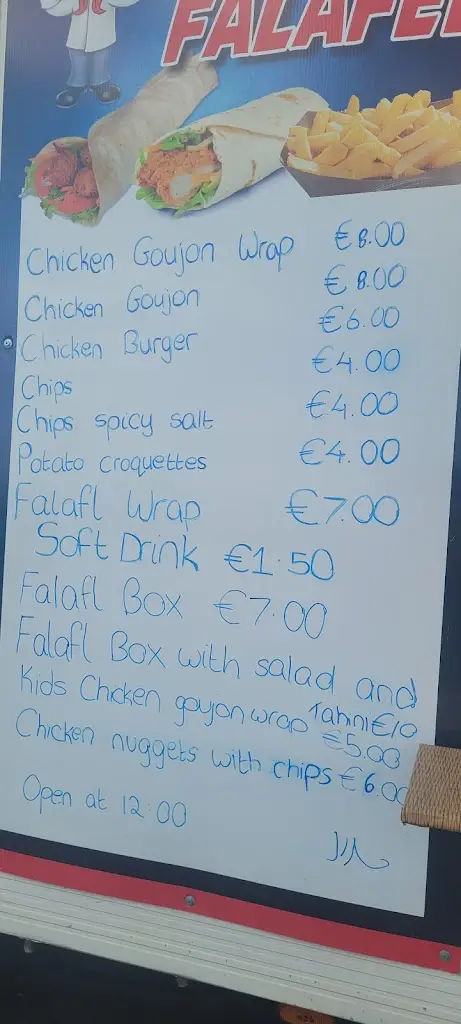 FALAFEL
Chicken Goujon Wrap €8.00
Chicken Goujon €8.00
Chicken Burger €6.00
Chips €4.00
Chips spicy salt €4.00
Potato croquettes €4.00
Falafl Wrap €7.00
Soft Drink €1.50
Falafl Box €7.00
Falafl Box with salad and
Tahni €10
Kids Chicken goujon wrap €5.00
Chicken nuggets with chips €6.00
Open at 12:00